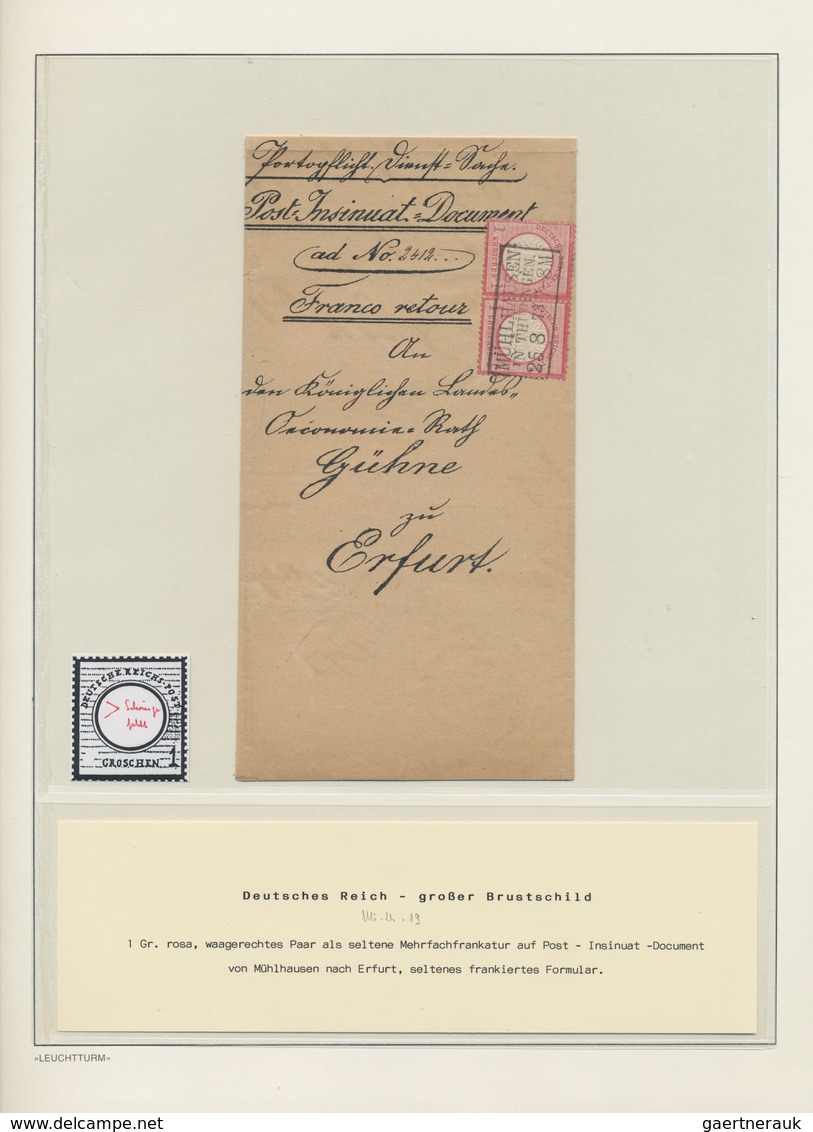 Portopflicht. Dienst-Sache.
Post-Insinuat.-Document
ad No. 2412...
Franco retour
An
den Königlichen Landes-
Oeconomie-Rath
Gühne
zu
Erfurt.
1 GROSCHEN 1
DEUTSCHE
MÜHLHAUSEN
IN THÜRINGEN.
25 8
DEUTSCHE REICHS-POST
> Schwinge
fehlt
GROSCHEN 1
Deutsches Reich - großer Brustschild
Mi.-Nr. 19
1 Gr. rosa, waagerechtes Paar als seltene Mehrfachfrankatur auf Post - Insinuat -Document
von Mühlhausen nach Erfurt, seltenes frankiertes Formular.
»LEUCHTTURM«
gaertnerauk